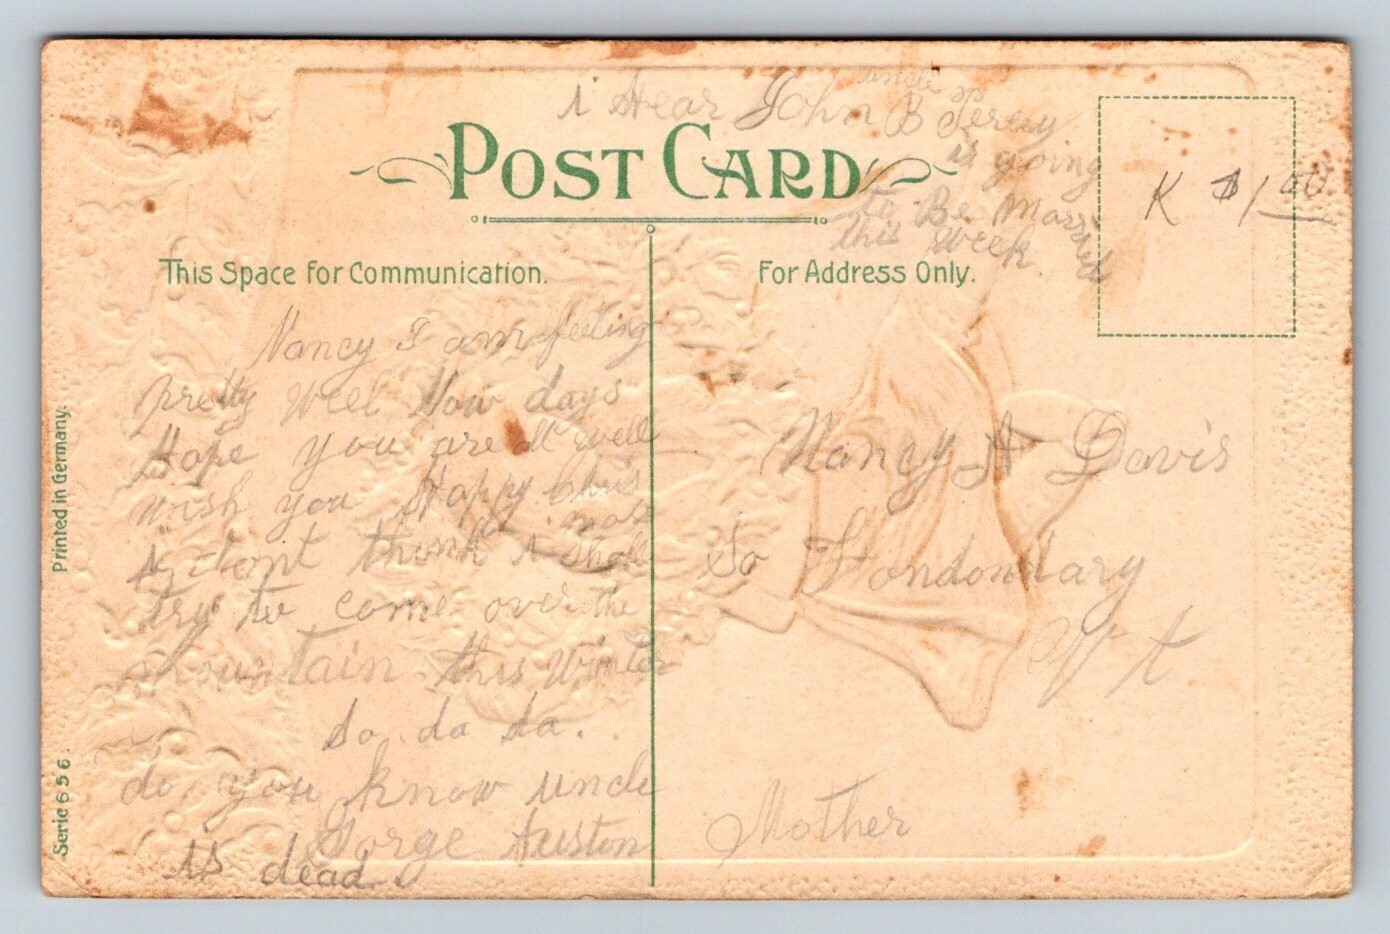 uncle
i Hear John B Percy
is going
to Be Married
this week.
POST CARD
K $1.00
This Space for Communication.
For Address Only.
Nancy I am feeling
pretty well Now days
Hope you are all well
wish you Happy Chris
mas
i dont think i shall
try to come over the
mountain this winter
da da da.
do you know uncle
Gorge Auston
is dead.
Nancy A Davis
So Londondary
Vt
Mother
Printed in Germany.
Serie 656.